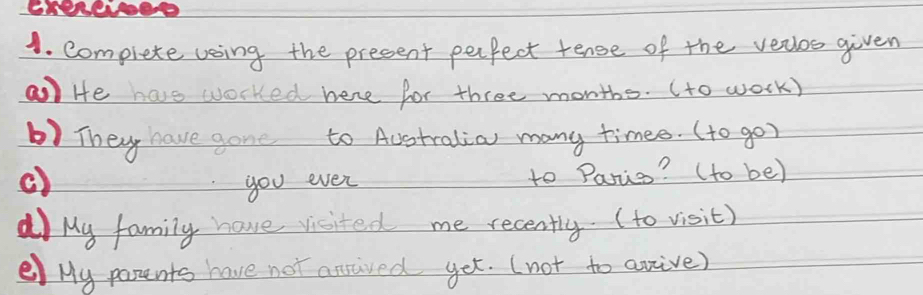 exercises
1. Complete using the present perfect tense of the verbs given
a) He has worked here for three months. (to work)
b) They have gone to Australia many times. (to go)
c) you ever to Paris? (to be)
d) My family have visited me recently. (to visit)
e) My parents have not arrived yet. (not to arrive)